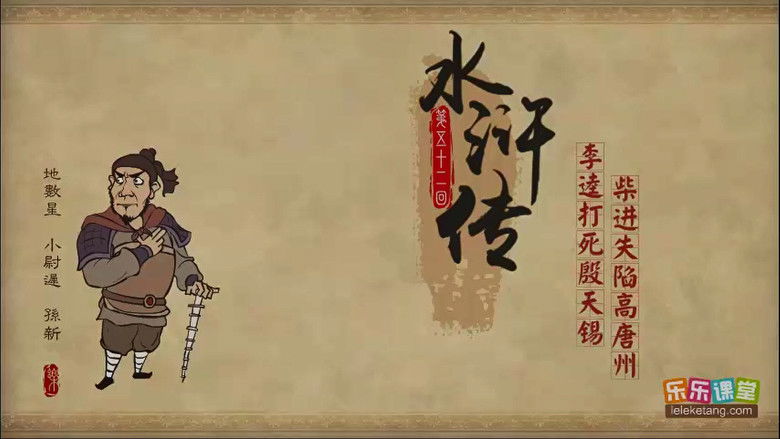 水浒传
第五十二回
李逵打死殷天锡
柴进失陷高唐州
地數星 小尉遲 孫新
乐乐课堂
leleketang.com